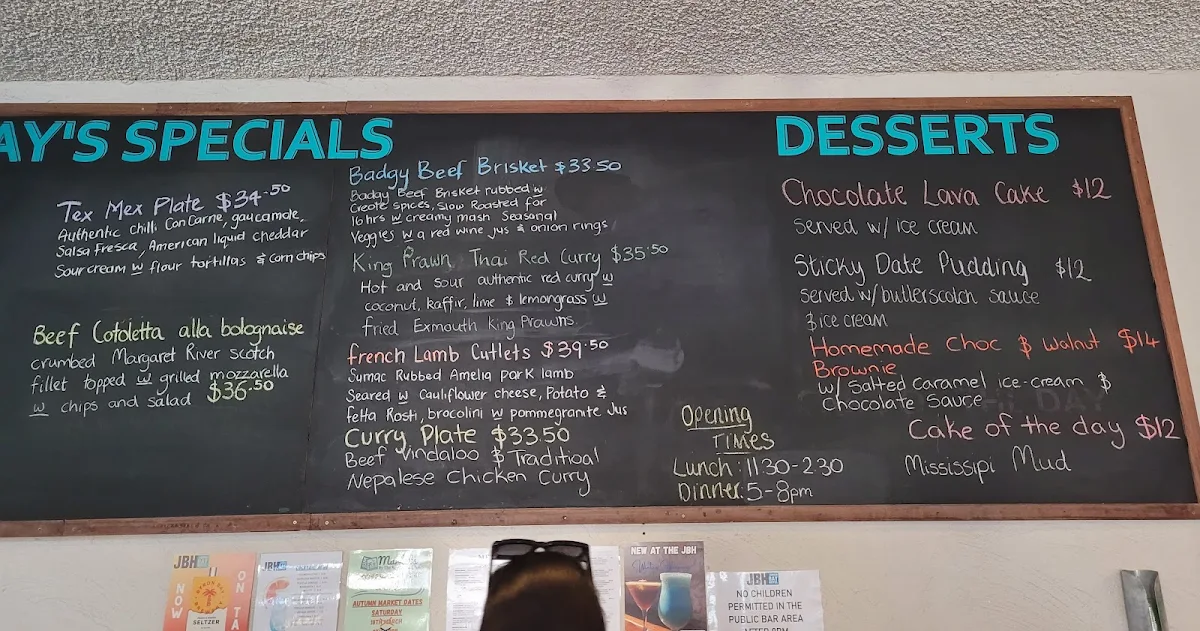 AY'S SPECIALS
Tex Mex Plate $34.50
Authentic chilli Con Carne, gaucamole,
Salsa Fresca, American liquid cheddar
Sour cream w flour tortillas & corn chips
Beef Cotoletta alla bolognaise
crumbed Margaret River scotch
fillet topped w grilled mozzarella
w chips and salad $36.50
Badgy Beef Brisket $33.50
Badgy Beef Brisket rubbed w
Creole spices, Slow Roasted for
16 hrs w creamy mash Seasonal
Veggies w a red wine jus & onion rings
King Prawn Thai Red Curry $35.50
Hot and sour authentic red curry w
coconut, kaffir, lime & lemongrass w
fried Exmouth King Prawns
French Lamb Cutlets $39.50
Sumac Rubbed Amelia park lamb
Seared w cauliflower cheese, Potato &
fetta Rosti, brocolini w pommegranite Jus
Curry Plate $33.50
Beef Vindaloo & Traditioal
Nepalese Chicken Curry
Opening
TIMES
Lunch: 11:30-2:30
Dinner: 5-8pm
DESSERTS
Chocolate Lava Cake $12
served w/ ice cream
Sticky Date Pudding $12
served w/ butterscotch sauce
& ice cream
Homemade Choc & Walnut $14
Brownie
w/ Salted Caramel ice-cream &
Chocolate Sauce
Cake of the day $12
Mississipi Mud
JBH
NOW
ON TA
SELTZER
JBH
AUTUMN MARKET DATES
SATURDAY
18TH MARCH
NEW AT THE JBH
JBH
NO CHILDREN
PERMITTED IN THE
PUBLIC BAR AREA
AFTER 8PM